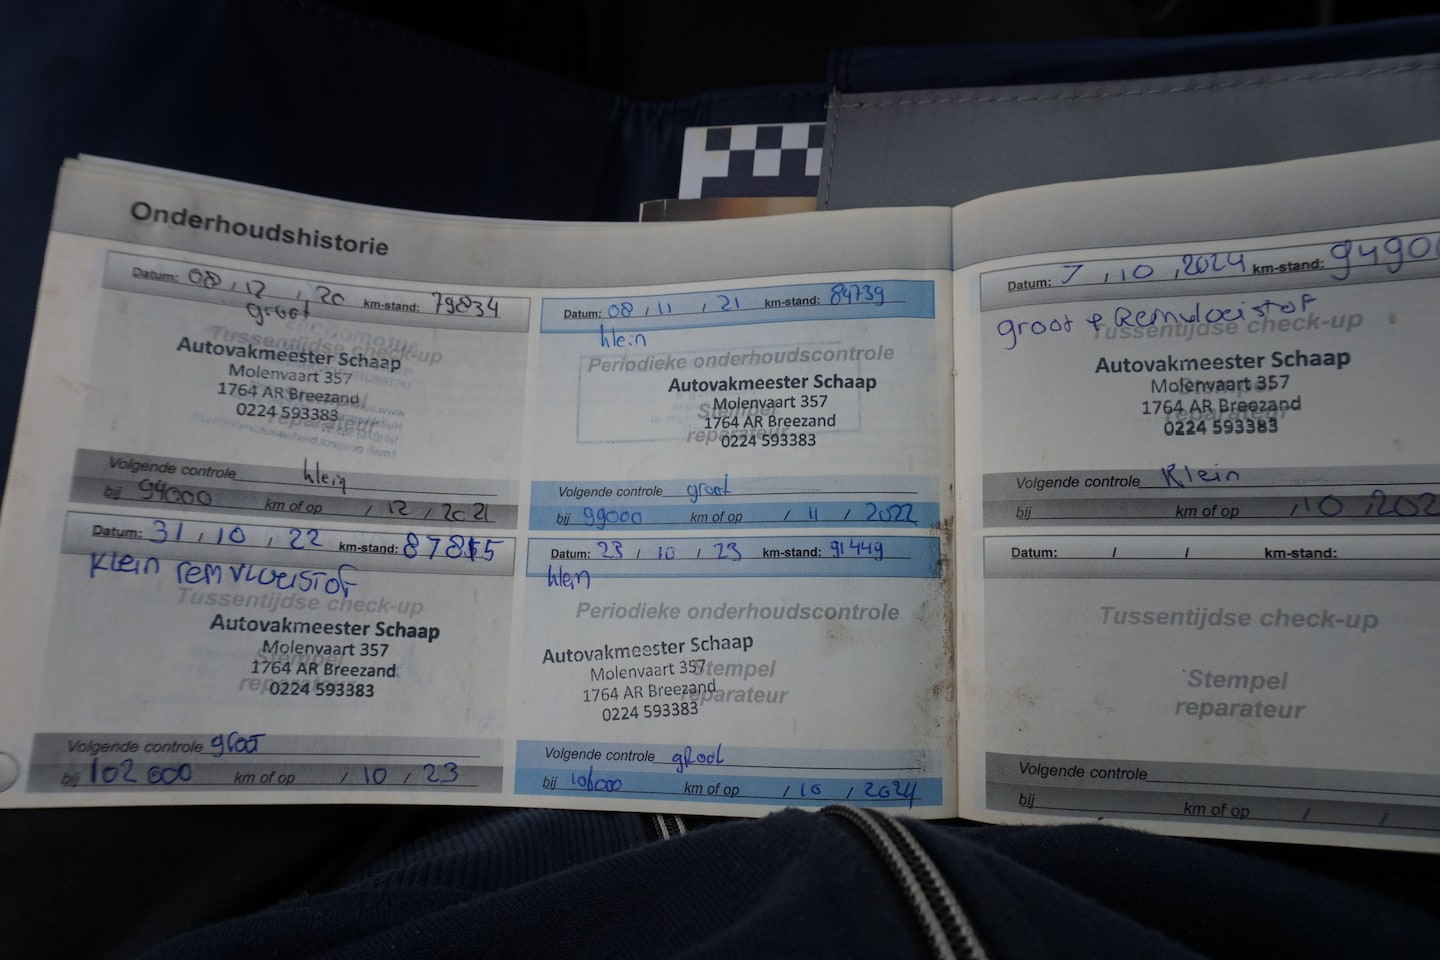 Onderhoudshistorie
Datum: 08 / 12 / 20 km-stand: 79834
groot
Tussentijdse check-up
Autovakmeester Schaap
Molenvaart 357
1764 AR Breezand
0224 593383
reparateur
Volgende controle klein
bij 94000 km of op / 12 / 2021
Datum: 08 / 11 / 21 km-stand: 84739
klein
Periodieke onderhoudscontrole
Autovakmeester Schaap
Molenvaart 357
Stempel
1764 AR Breezand
reparateur
0224 593383
Volgende controle groot
bij 99000 km of op / 11 / 2022
Datum: 31 / 10 / 22 km-stand: 87815
Klein remvloeistof
Tussentijdse check-up
Autovakmeester Schaap
Molenvaart 357
Stempel
1764 AR Breezand
reparateur
0224 593383
Volgende controle groot
bij 102000 km of op / 10 / 23
Datum: 23 / 10 / 23 km-stand: 91449
klein
Periodieke onderhoudscontrole
Autovakmeester Schaap
Molenvaart 357
Stempel
1764 AR Breezand
reparateur
0224 593383
Volgende controle groot
bij 106000 km of op / 10 / 2024
Datum: 7 / 10 / 2024 km-stand:
groot + Remvloeistof
Tussentijdse check-up
Autovakmeester Schaap
Molenvaart 357
Stempel
1764 AR Breezand
reparateur
0224 593383
Volgende controle Klein
bij km of op / 10 / 202
Datum: / / km-stand:
Tussentijdse check-up
Stempel
reparateur
Volgende controle
bij km of op / /